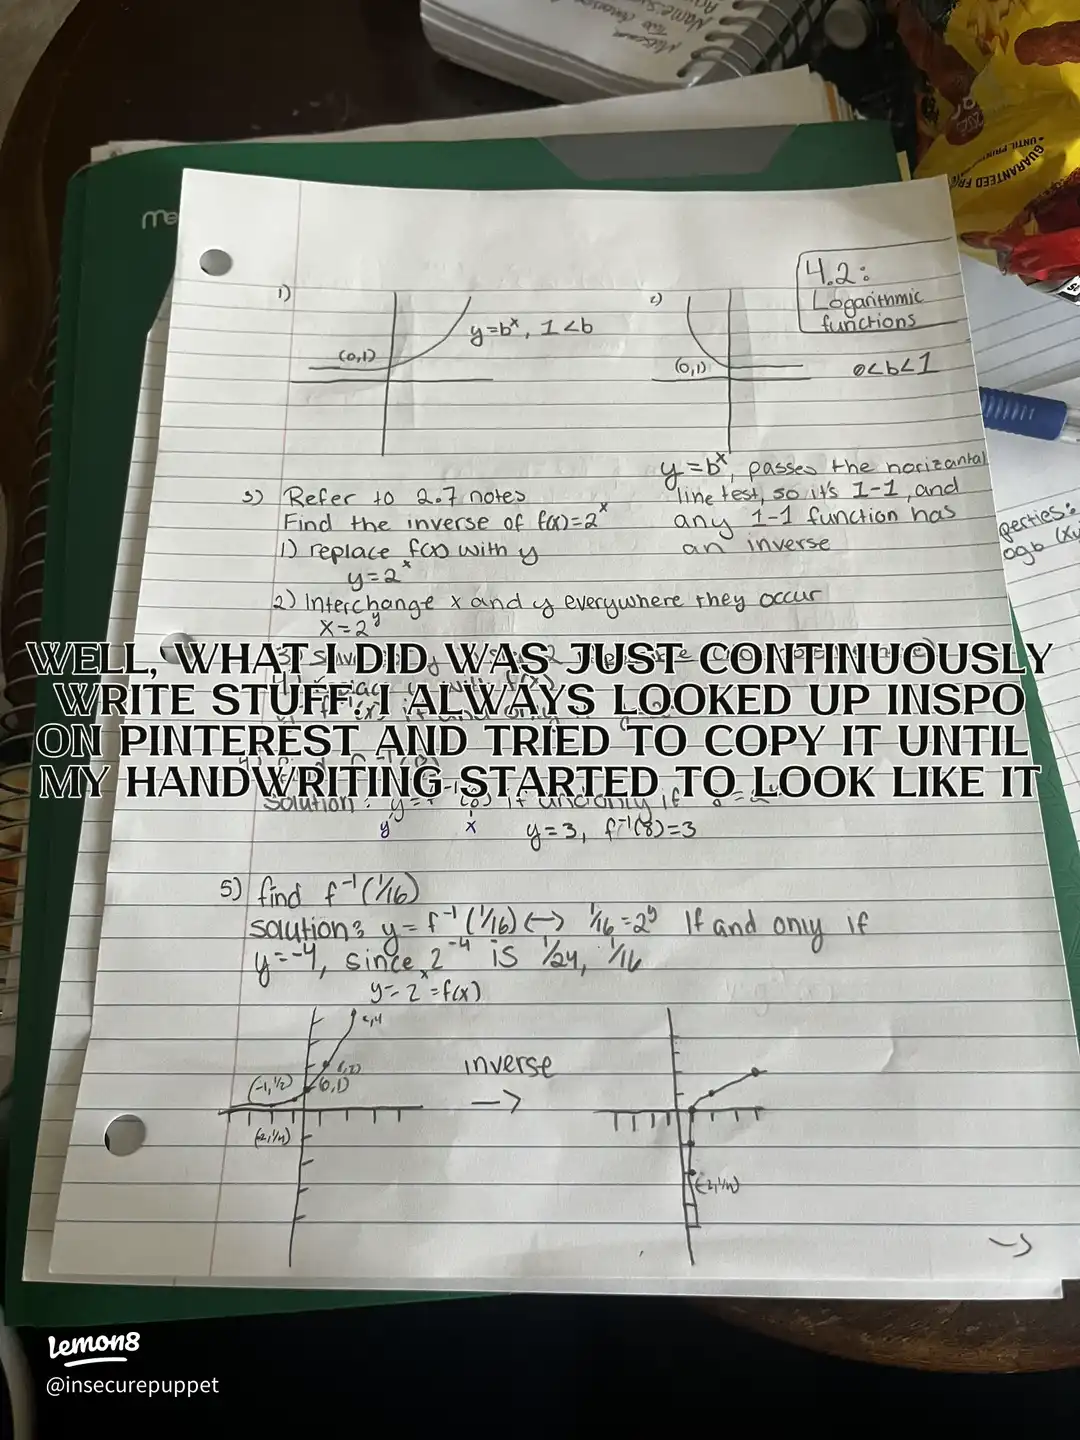 me
4.2:
Logarithmic
functions
1)
y=bˣ, 1<b
(0,1)
2)
(0,1)
0<b<1
y=bˣ, passes the horizantal
line test, so it's 1-1, and
any 1-1 function has
an inverse
3) Refer to 2.7 notes
Find the inverse of f(x)=2ˣ
1) replace f(x) with y
y=2ˣ
2) Interchange x and y everywhere they occur
x=2ʸ
WELL, WHAT I DID WAS JUST CONTINUOUSLY
WRITE STUFF. I ALWAYS LOOKED UP INSPO
ON PINTEREST AND TRIED TO COPY IT UNTIL
MY HANDWRITING STARTED TO LOOK LIKE IT
solution: if and only if
y x y=3, f⁻¹(8)=3
5) find f⁻¹(1/16)
solution: y=f⁻¹(1/16) <-> 1/16=2ʸ If and only if
y=-4, since 2⁻⁴ is 1/24, 1/16
y=2ˣ=f(x)
(-1,1/2)
(0,1)
(-2,1/4)
inverse
->
(-2,1/4)
->
perties:
ogb (xy
GUARANTEED FRE
UNTIL PRIN
Lemon8
@insecurepuppet